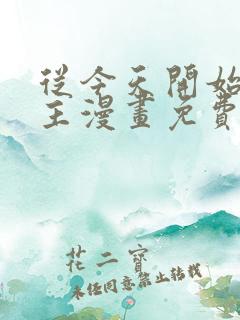 從今天開始
王漫畫免費
花二寶
未經同意禁止轉載